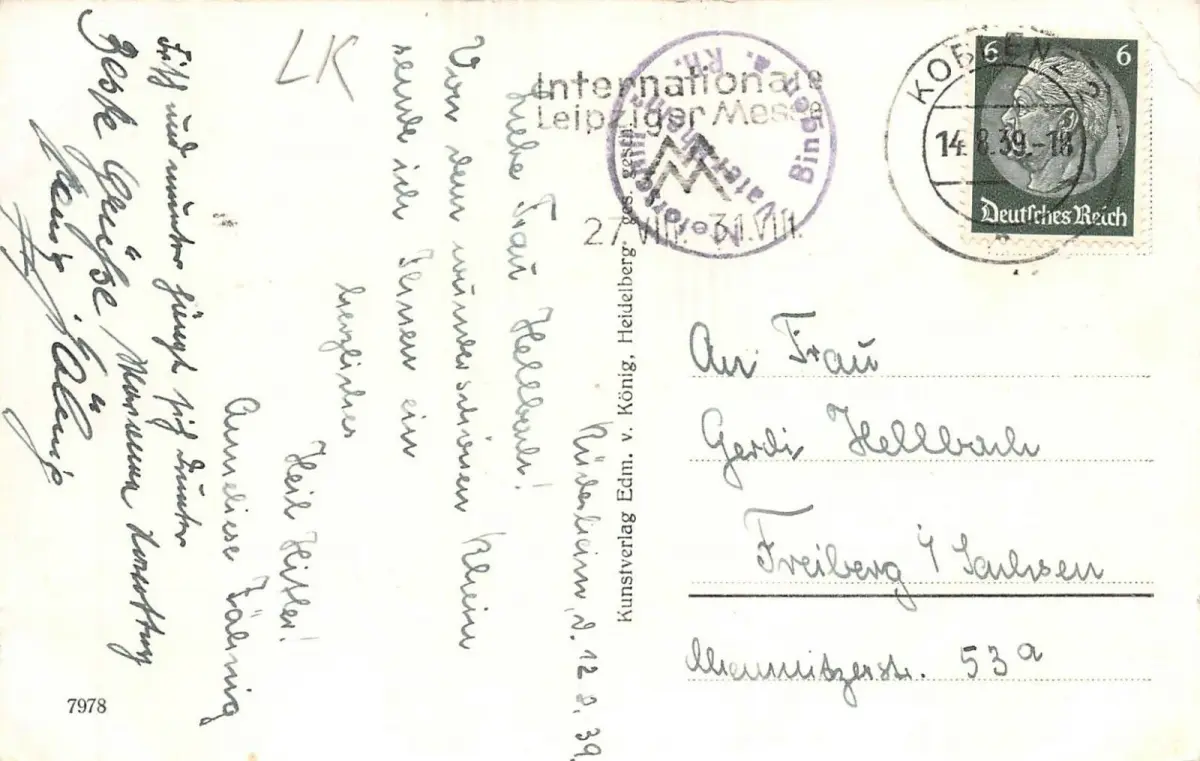 Rüdesheim, d. 12. 8. 39.
Liebe Frau Hellbach!
Von dem wunderschönen Rhein
sende ich Ihnen ein
herzliches
Heil Hitler!
Anneliese
und munter
Beste Grüße
LK
7978
Kunstverlag Edm. v. König, Heidelberg. ges. gesch.
Internationale
Leipziger Messe
27.VIII. 31.VIII.
Motorschiff
"Vater Rhein"
Bingen a. Rh.
KOBLENZ
14.8.39.-18
6 6
Deutsches Reich
An Frau
Gerdi Hellbach
Freiberg i/ Sachsen
Chemnitzerstr. 53a